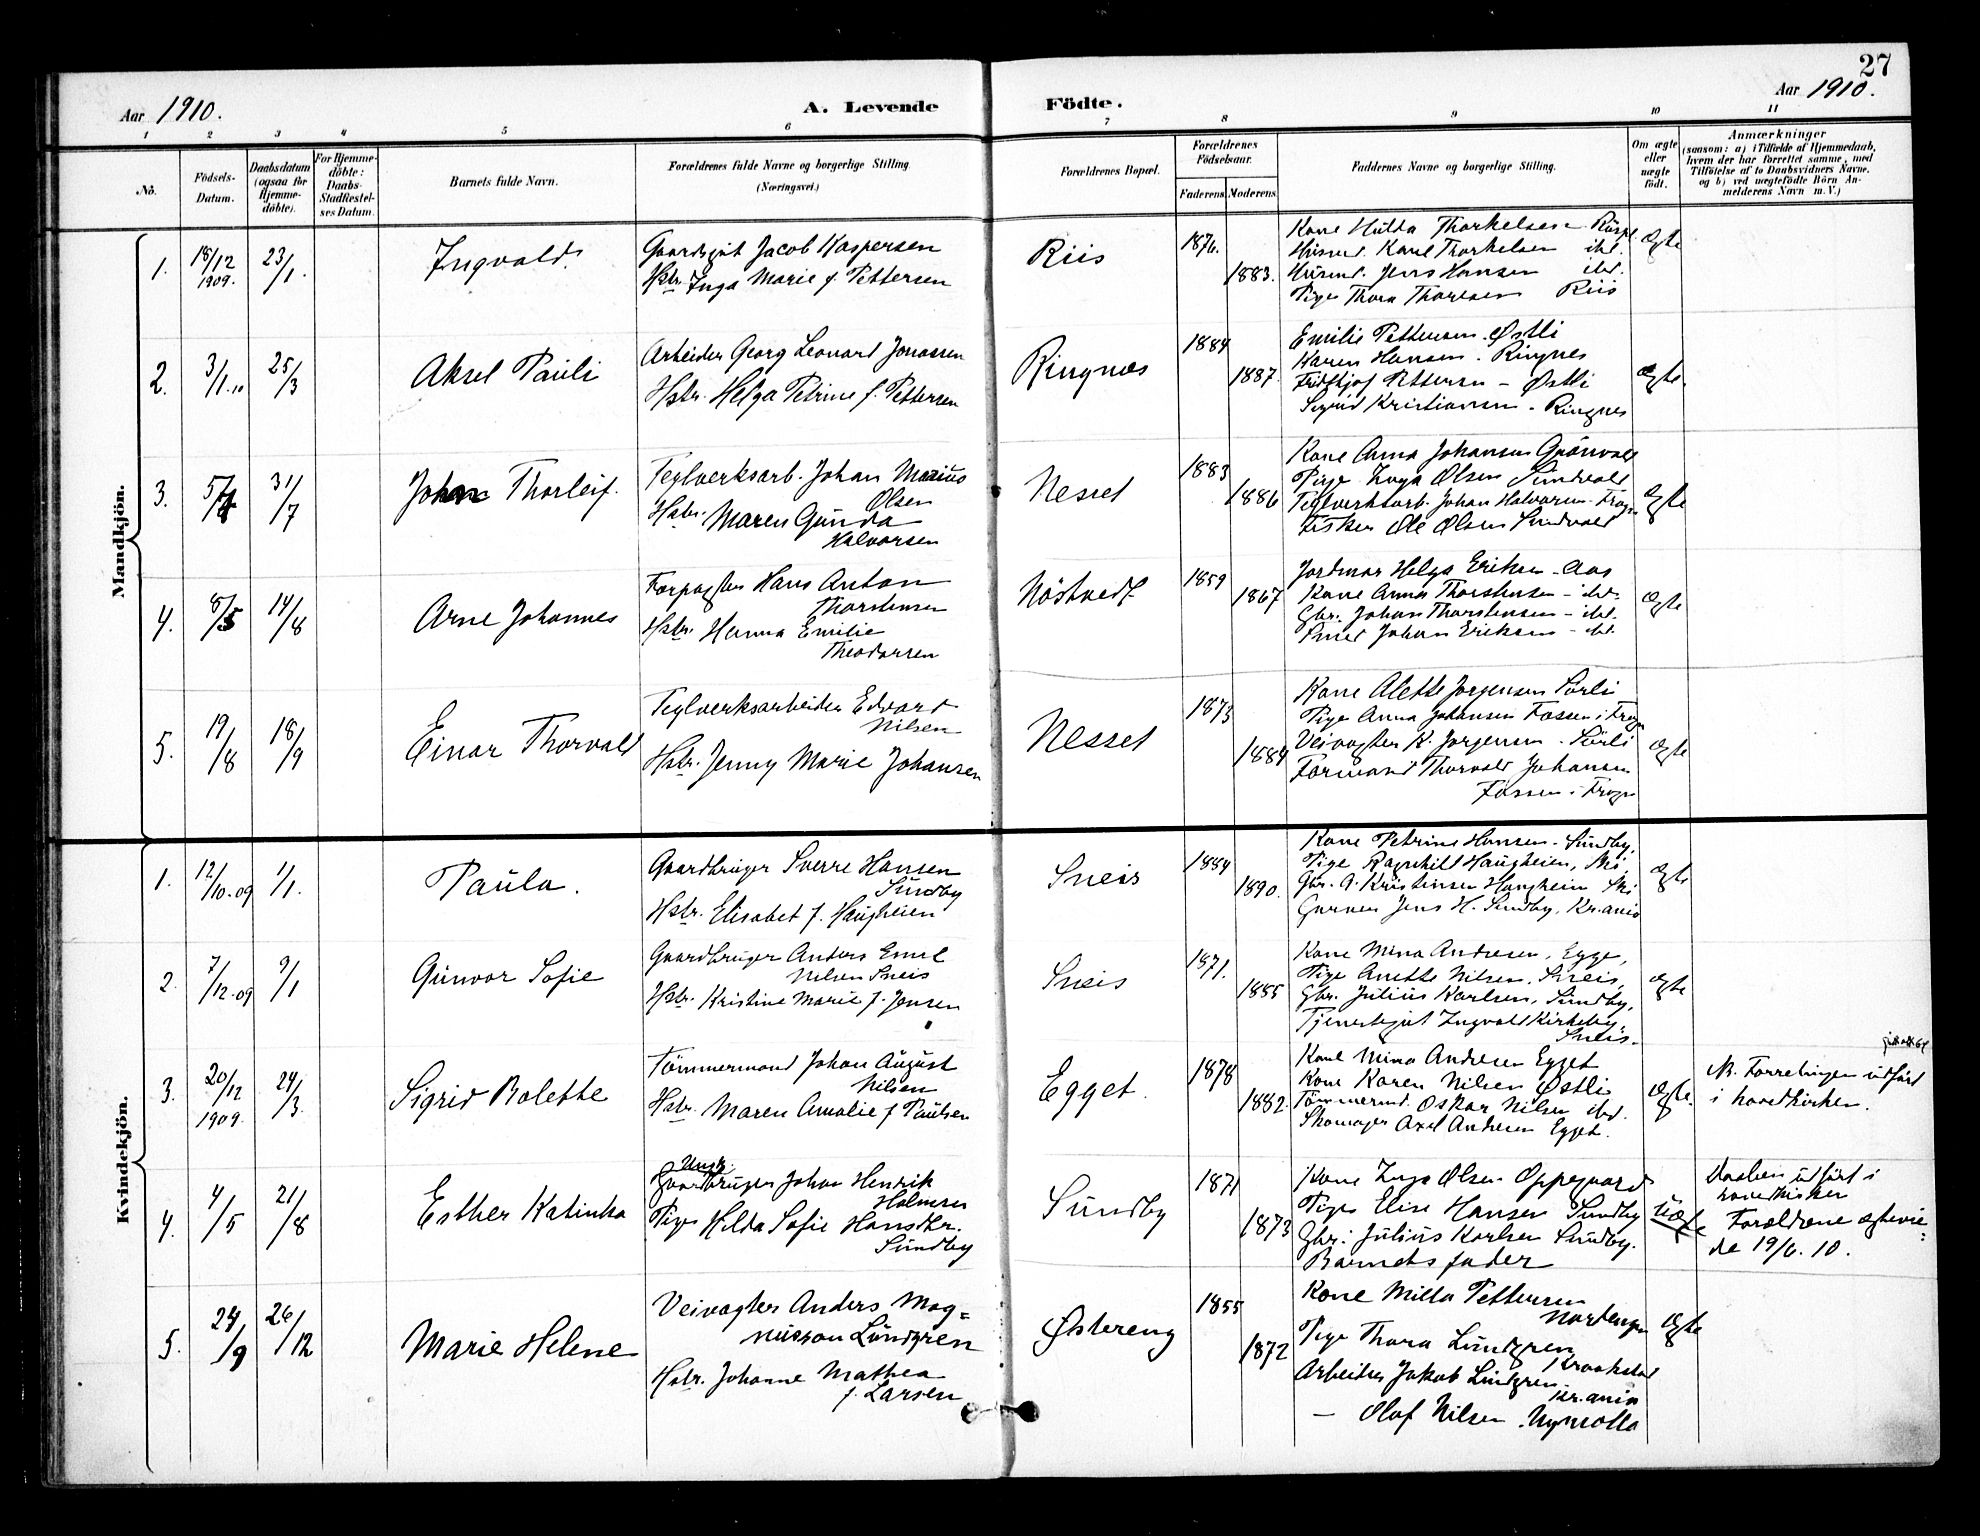 27
Aar 1910.
A. Levende
Födte.
Aar 1910.
1 2 3 4 5 6 7 8 9 10 11
No.
Födsels-
Datum.
Daabsdatum
(ogsaa for
Hjemme-
döbte).
For Hjemme-
döbte:
Daabs-
Stadfæstel-
ses Datum.
Barnets fulde Navn.
Forældrenes fulde Navne og borgerlige Stilling
(Næringsvei.)
Forældrenes Bopæl.
Forældrenes
Födselsaar.
Faderens. Moderens.
Faddernes Navne og borgerlige Stilling.
Om ægte
eller
uægte
födt.
Anmærkninger
(saasom: a) i Tilfælde af Hjemmedaab,
hvem der har forrettet samme, med
Tilföielse af to Daabsvidners Navne,
og b) ved uægtefödte Börn An-
melderens Navn m. V.)
Mandkjön.
1. 18/12 1909. 23/1.
Ingvald.
Gaardsgut Jacob Kaspersen
Hstr. Inga Marie f. Pettersen
Riis
1876.
1883.
Kone Hulda Thorkelsen
Karel Thorkelsen ibd.
Jens Hansen ibd.
Pige Thora Thoresen Riis
Ægte
2. 3/1.10 25/3
Aksel Pauli
Arbeider Georg Leonard Jonassen
Hstr. Helga Petrine f. Pettersen
Ringnes
1884
1887.
Emilie Pettersen. Østli
Karen Hansen. Ringnes
Fridtjof Pettersen - Østli
Sigrid Kristiansen. Ringnes
Ægte.
3. 5/4 31/7
Johan Thorleif.
Teglverksarb. Johan Marius
Olsen
Hstr. Maren Gunda
Halvorsen
Nesset
1883
1886
Kone Anna Johansen Grönvold
Pige Inga Olsen Sundvold
Teglverksarb. Johan Halvorsen. Frogn
Fisker Ole Olsen Sundvold
Ægte
4. 8/5 14/8
Arne Johannes
Forpagter Hans Anton
Thorstensen
Hstr. Hanna Emilie
Theodorsen
Nöstvedt
1859
1867
Jordmor Helga Eriksen. Aas
Kone Anna Thorstensen - ibd.
Gbr. Johan Thorstensen - ibd.
Smed Johan Eriksen - ibd.
Ægte
5. 19/8 18/9
Einar Thorvald
Teglverksarbeider Edvard
Nilsen
Hstr. Jenny Marie Johansen
Nesset
1873
1884
Kone Alette Jorgensen Sörli
Pige Anna Johansen Fossen i Frogn
Veivogter K. Jorgensen. Sörli
Formand Thorvald Johansen
Fossen i Frogn
Ægte
Kvindekjön.
1. 12/10.09 1/1.
Paula.
Gaardbruger Sverre Hansen
Sundby
Hstr. Elisabet f. Haugheien
Sneis
1884
1890.
Kone Petrine Hansen. Sundby,
Pige Ragnhild Haugheien, Ski,
Gbr. A. Kristinsen Haugheien Ski
Jens H. Sundby, Kr.ania
Ægte
2. 7/12.09 9/1
Gunvor Sofie
Gaardbruger Anders Emil
Nilsen Sneis
Hstr. Kristine Marie f. Jensen
Sneis
1871.
1885
Kone Mina Andresen, Egge,
Pige Anette Nilsen. Sneis,
Gbr. Julius Karlsen, Sundby,
Tjenestegut Ingvald Kirkeby,
Sneis.
Ægte
3. 20/12 1909. 24/3.
Sigrid Bolette
Tömmermand Johan August
Nilsen
Hstr. Maren Amalie f Paulsen
Egget.
1878
1882.
Kone Mina Andresen Egget
Kone Karen Nilsen Østli
Tömmermd. Oskar Nilsen ibd.
Skomager Axel Andresen Egget.
Ægte.
N. Forretningen udfört
i hovedkirken.
4. 4/5 21/8
Esther Katinka
Ungk.
Gaardbruger Johan Henrik
Holmsen
Pige Hilda Sofie Hansdtr.
Sundby
Sundby
1871
1873
Kone Inga Olsen. Oppegaard
Pige Elise Hansen Sundby
Gbr. Julius Karlsen Sundby.
Barnets fader
Uægte
Daaben udfört i
hovedkirken
Forældrene ægtevie-
de 19/6.10.
5. 24/9 26/12
Marie Helene
Veivogter Anders Mag-
nusson Lundgren
Hstr. Johanne Mathea
f. Larsen
Østereng
1855
1872
Kone Milla Pettersen
Nordengen
Pige Thora Lundgren
Kraakstad
Arbeider Jakob Lundgren
Kr.ania
— Olaf Nilsen. Nymolla
Ægte